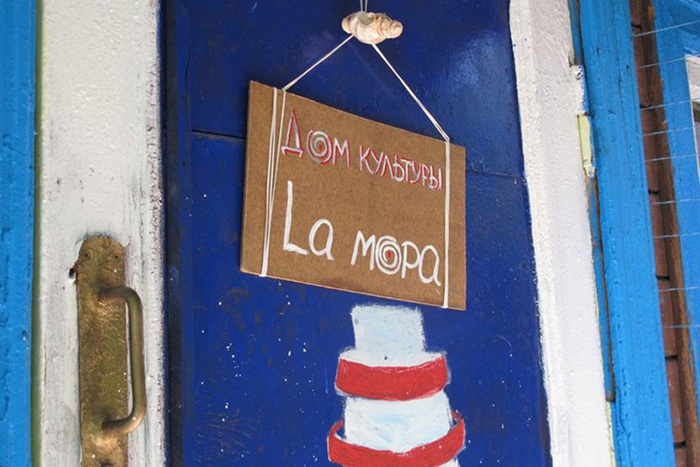 Дом культуры
La мора